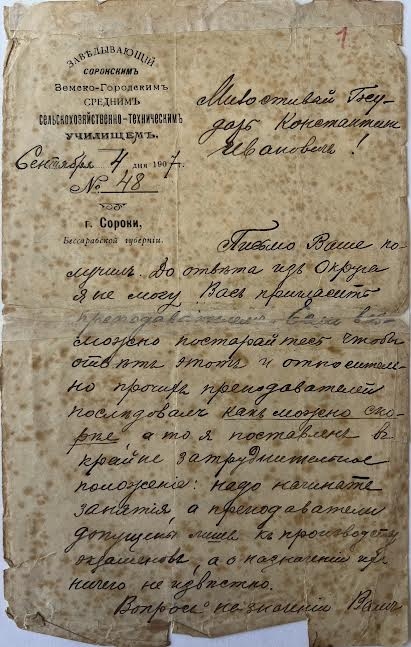 1.
ЗАВѢДЫВАЮЩІЙ
СОРОКСКИМЪ
Земско-Городскимъ
СРЕДНИМЪ
СЕЛЬСКОХОЗЯЙСТВЕННО-ТЕХНИЧЕСКИМЪ
УЧИЛИЩЕМЪ.
Сентября 4 дня 1907 г.
№ 48
г. Сороки,
Бессарабской губерніи.
Милостивый Госу-
дарь Константинъ
Ивановичъ!
Письмо Ваше по-
лучилъ. До отвѣта изъ Округа
я не могу Васъ пригласить
преподавателемъ. Если
можно постарайтесь чтобы
отвѣтъ этотъ и относитель-
но прочихъ преподавателей
послѣдовалъ какъ можно ско-
рѣе, а то я поставленъ въ
крайне затруднительное
положеніе: надо начинать
занятія, а преподаватели
допущены лишь къ производству
экзаменовъ, а о назначеніи их
ничего не извѣстно.
Вопросъ о назначеніи Васъ